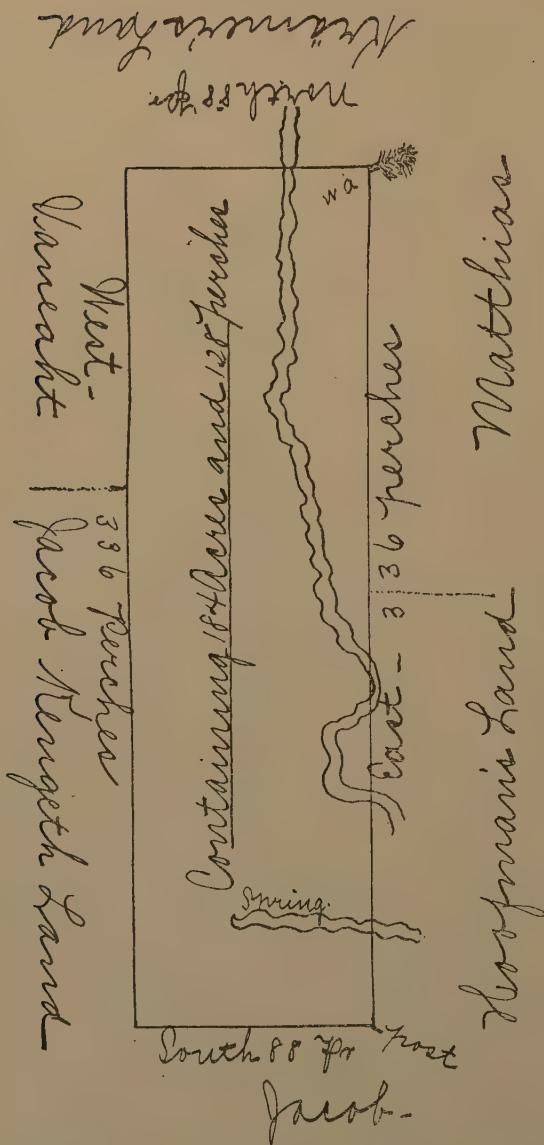 Krämer's Land
North 88 pr.
w a
Matthias
Hoofman's Land
East - 336 perches
Containing 184 Acres and 128 Perches
Spring.
West -
336 Perches
Vaneaht
Jacob Rengeth Land
South 88 pr
Post
Jacob -